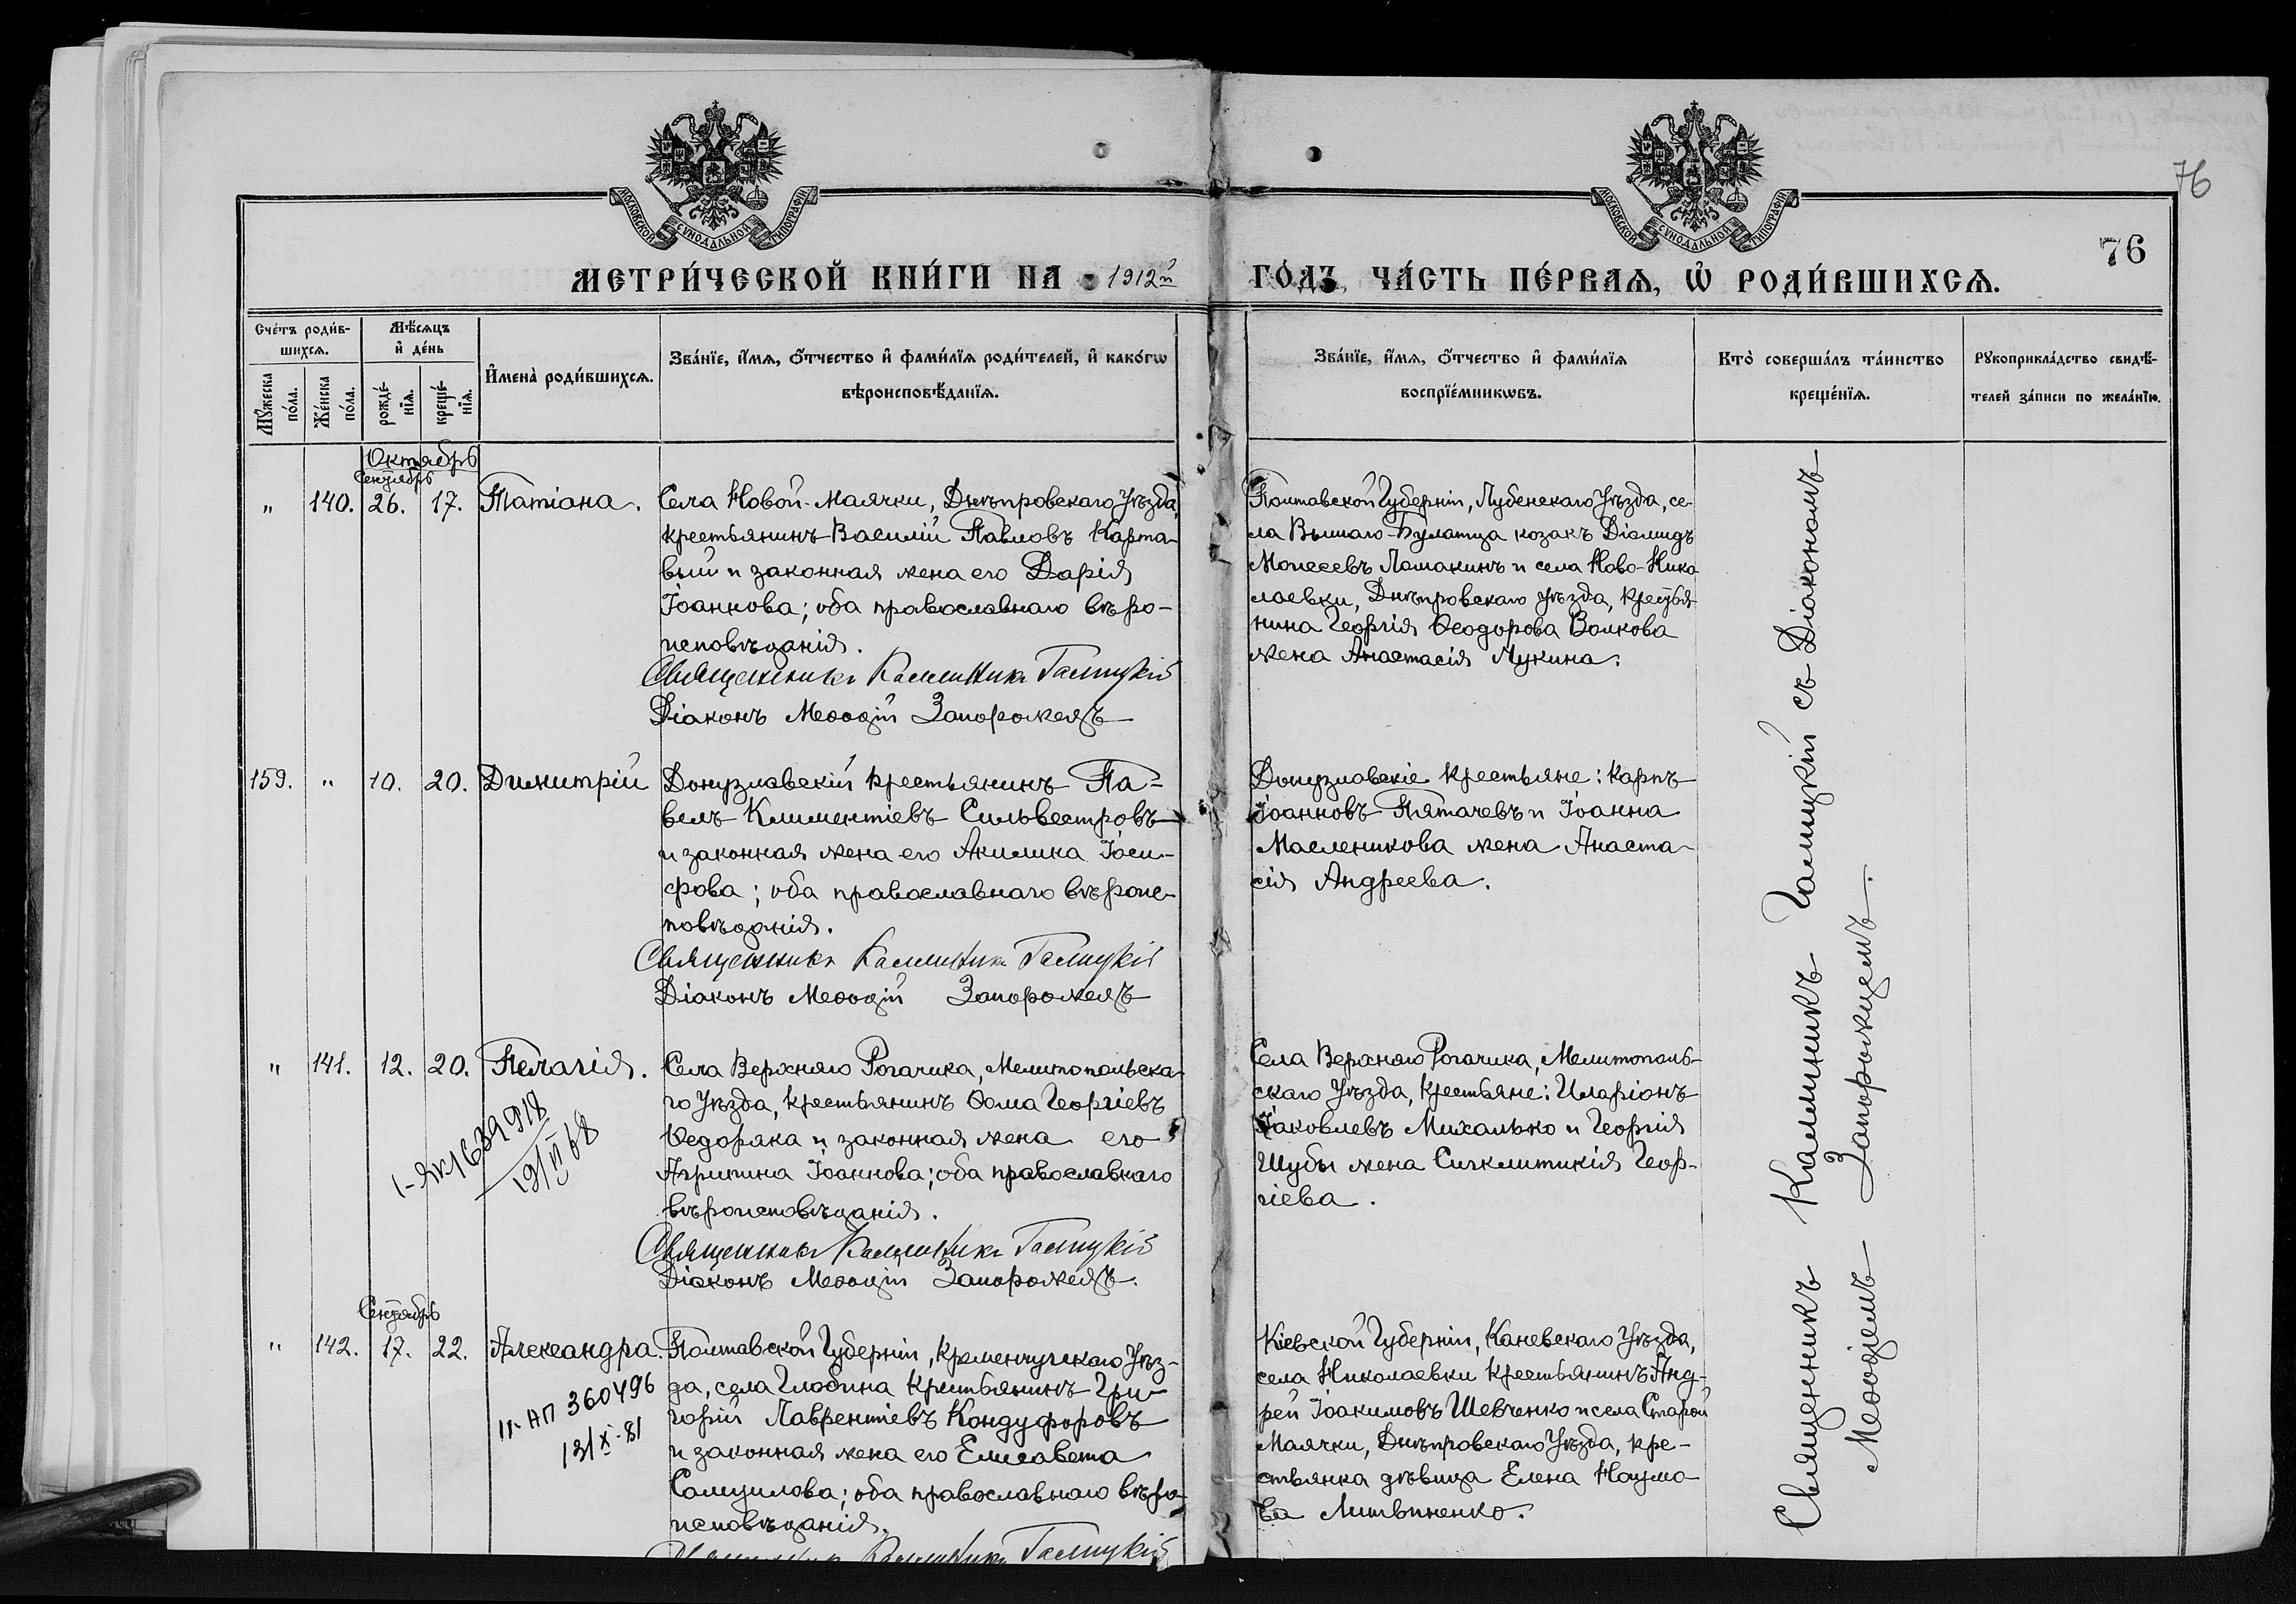 76
76
МОСКОВСКОЙ СѴНОДАЛЬНОЙ ТИПОГРАФІИ.
МОСКОВСКОЙ СѴНОДАЛЬНОЙ ТИПОГРАФІИ.
МЕТРИ́ЧЕСКОЙ КНИ́ГИ НА 1912й ГО́ДЪ, ЧА́СТЬ ПЕ́РВАѦ, Ѡ҆ РОДИ́ВШИХСѦ.
Сче́тъ роди́в-
шихсѧ.
Мꙋ́жеска
по́ла.
Же́нска
по́ла.
Мѣ́сѧцъ
и҆ де́нь
рожде́-
нїѧ.
креще́-
нїѧ.
И҆мена̀ роди́вшихсѧ.
Зва́нїе, и҆́мѧ, ѻ҆́тчество и҆ фами́лїѧ роди́телей, и҆ како́гѡ
вѣроисповѣ́данїѧ.
Зва́нїе, и҆́мѧ, ѻ҆́тчество и҆ фами́лїѧ
воспрїе́мникѡвъ.
Кто̀ соверша́лъ та́инство
креще́нїѧ.
Рꙋкоприкла́дство свидѣ́-
телей за́писи по жела́нїю.
Октябрь
Сентябрь
" 140. 26. 17. Татіана.
Села Новой-Маячки, Днѣпровскаго Уѣзда,
крестьянинъ Василій Павловъ Карта-
вый и законная жена его Дарія
Іоаннова; оба православнаго вѣро-
исповѣданія.
Священникъ Каллиникъ Галицкій
Діаконъ Меѳодій Запорожецъ
Полтавской Губерніи, Лубенскаго Уѣзда, се-
ла Вышаго-Булатца козакъ Діомидъ
Моисеевъ Ломакинъ и села Ново-Нико
лаевки, Днѣпровскаго уѣзда, крестья
нина Георгія Ѳеодорова Волкова
жена Анастасія Лукина.
159. " 10. 20. Димитрій
Донузлавскій крестьянинъ Па-
велъ Климентіевъ Сильвестровъ
и законная жена его Акилина Іоси-
фова; оба православнаго вѣроис-
повѣданія.
Священникъ Каллиникъ Галицкій
Діаконъ Меѳодій Запорожецъ
Донузлавскіе крестьяне: Карпъ
Іоанновъ Пятачевъ и Іоанна
Масленикова жена Анаста-
сія Андреева.
" 141. 12. 20. Пелагія.
1-ЯК 639918
19/VI 68
Села Верхняго Рогачика, Мелитопольска-
го Уѣзда, крестьянинъ Ѳома Георгіевъ
Ѳедоряка и законная жена его
Агрипина Іоаннова; оба православнаго
вѣроисповѣданія.
Священникъ Каллиникъ Галицкій
Діаконъ Меѳодій Запорожецъ.
Села Верхняго Рогачика, Мелитополь-
скаго Уѣзда, крестьяне: Иларіонъ
Іаковлевъ Михалько и Георгія
Шубы жена Сигклитикія Геор-
гіева.
Сентябрь
" 142. 17. 22. Александра.
II-АП 360496
13/X-81
Полтавской Губерніи, Кременчугскаго Уѣз-
да, села Глобина крестьянинъ Гри-
горій Лаврентіевъ Кондуфоровъ
и законная жена его Елисавета
Самуилова; оба православнаго вѣро-
исповѣданія.
Священникъ Каллиникъ Галицкій
Кіевской Губерніи, Каневскаго Уѣзда,
села Николаевки крестьянинъ Анд-
рей Іоакимовъ Шевченко и села Старой
Маячки, Днѣпровскаго Уѣзда, кре-
стьянка дѣвица Елена Наумо-
ва Литвиненко.
Священникъ Каллиникъ Галицкій съ Діакономъ
Меѳодіемъ Запорожцемъ.